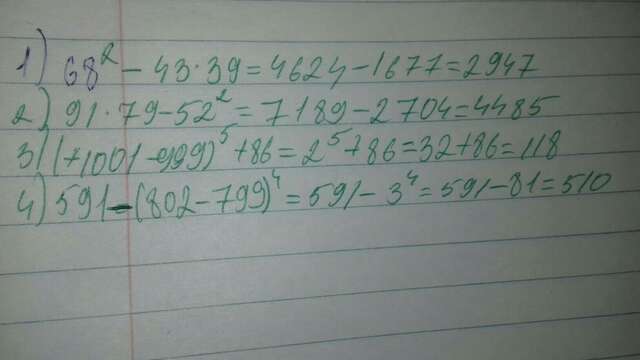 1) 68² - 43·39 = 4624 - 1677 = 2947
2) 91·79 - 52² = 7189 - 2704 = 4485
3) (+1001 - 999)⁵ + 86 = 2⁵ + 86 = 32 + 86 = 118
4) 591 - (802 - 799)⁴ = 591 - 3⁴ = 591 - 81 = 510